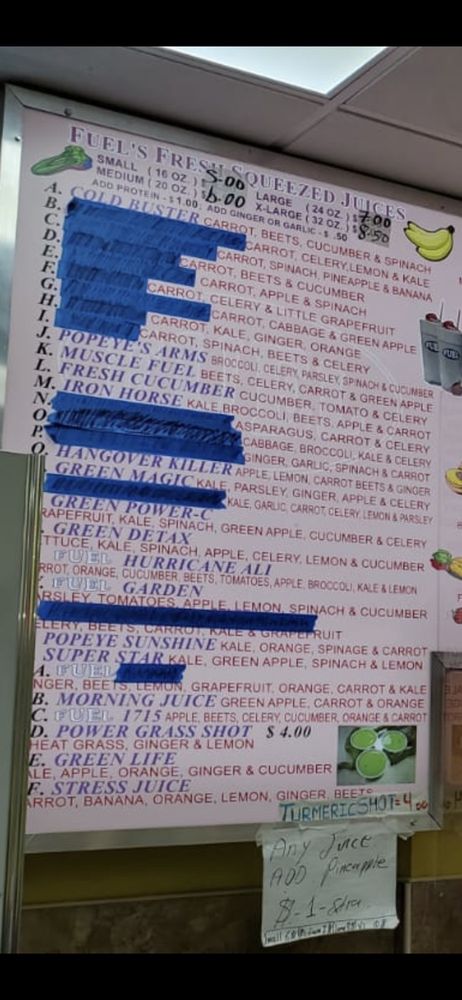 FUEL'S FRESH SQUEEZED JUICES
SMALL (16 OZ.) $ 5.00 LARGE (24 OZ.) $ 7.00
MEDIUM (20 OZ.) $ 6.00 X-LARGE (32 OZ.) $ 8.50
ADD PROTEIN - $1.00 ADD GINGER OR GARLIC - $ .50
A. COLD BUSTER CARROT, BEETS, CUCUMBER & SPINACH
B. CARROT, CELERY, LEMON & KALE
C. CARROT, SPINACH, PINEAPPLE & BANANA
D. CARROT, BEETS & CUCUMBER
E. CARROT, APPLE & SPINACH
F. CARROT, CELERY & LITTLE GRAPEFRUIT
G. CARROT, CABBAGE & GREEN APPLE
H. CARROT, KALE, GINGER, ORANGE
I. CARROT, SPINACH, BEETS & CELERY
J. POPEYE'S ARMS BROCCOLI, CELERY, PARSLEY, SPINACH & CUCUMBER
K. MUSCLE FUEL BEETS, CELERY, CARROT & GREEN APPLE
L. FRESH CUCUMBER CUCUMBER, TOMATO & CELERY
M. IRON HORSE KALE, BROCCOLI, BEETS, APPLE & CARROT
N. ASPARAGUS, CARROT & CELERY
O. CABBAGE, BROCCOLI, KALE & CELERY
P. GINGER, GARLIC, SPINACH & CARROT
Q. HANGOVER KILLER APPLE, LEMON, CARROT BEETS & GINGER
GREEN MAGIC KALE, PARSLEY, GINGER, APPLE & CELERY
KALE, GARLIC, CARROT, CELERY, LEMON & PARSLEY
GREEN POWER-C
RAPEFRUIT, KALE, SPINACH, GREEN APPLE, CUCUMBER & CELERY
GREEN DETAX
TTUCE, KALE, SPINACH, APPLE, CELERY, LEMON & CUCUMBER
FUEL HURRICANE ALI
RROT, ORANGE, CUCUMBER, BEETS, TOMATOES, APPLE, BROCCOLI, KALE & LEMON
FUEL GARDEN
ARSLEY, TOMATOES, APPLE, LEMON, SPINACH & CUCUMBER
ELERY, BEETS, CARROT, KALE & GRAPEFRUIT
POPEYE SUNSHINE KALE, ORANGE, SPINAGE & CARROT
SUPER STAR KALE, GREEN APPLE, SPINACH & LEMON
A. FUEL
NGER, BEETS, LEMON, GRAPEFRUIT, ORANGE, CARROT & KALE
B. MORNING JUICE GREEN APPLE, CARROT & ORANGE
C. FUEL 1715 APPLE, BEETS, CELERY, CUCUMBER, ORANGE & CARROT
D. POWER GRASS SHOT $ 4.00
HEAT GRASS, GINGER & LEMON
E. GREEN LIFE
ALE, APPLE, ORANGE, GINGER & CUCUMBER
F. STRESS JUICE
ARROT, BANANA, ORANGE, LEMON, GINGER, BEETS
TURMERIC SHOT = 4.00
Any Juice
ADD Pineapple
$-1-